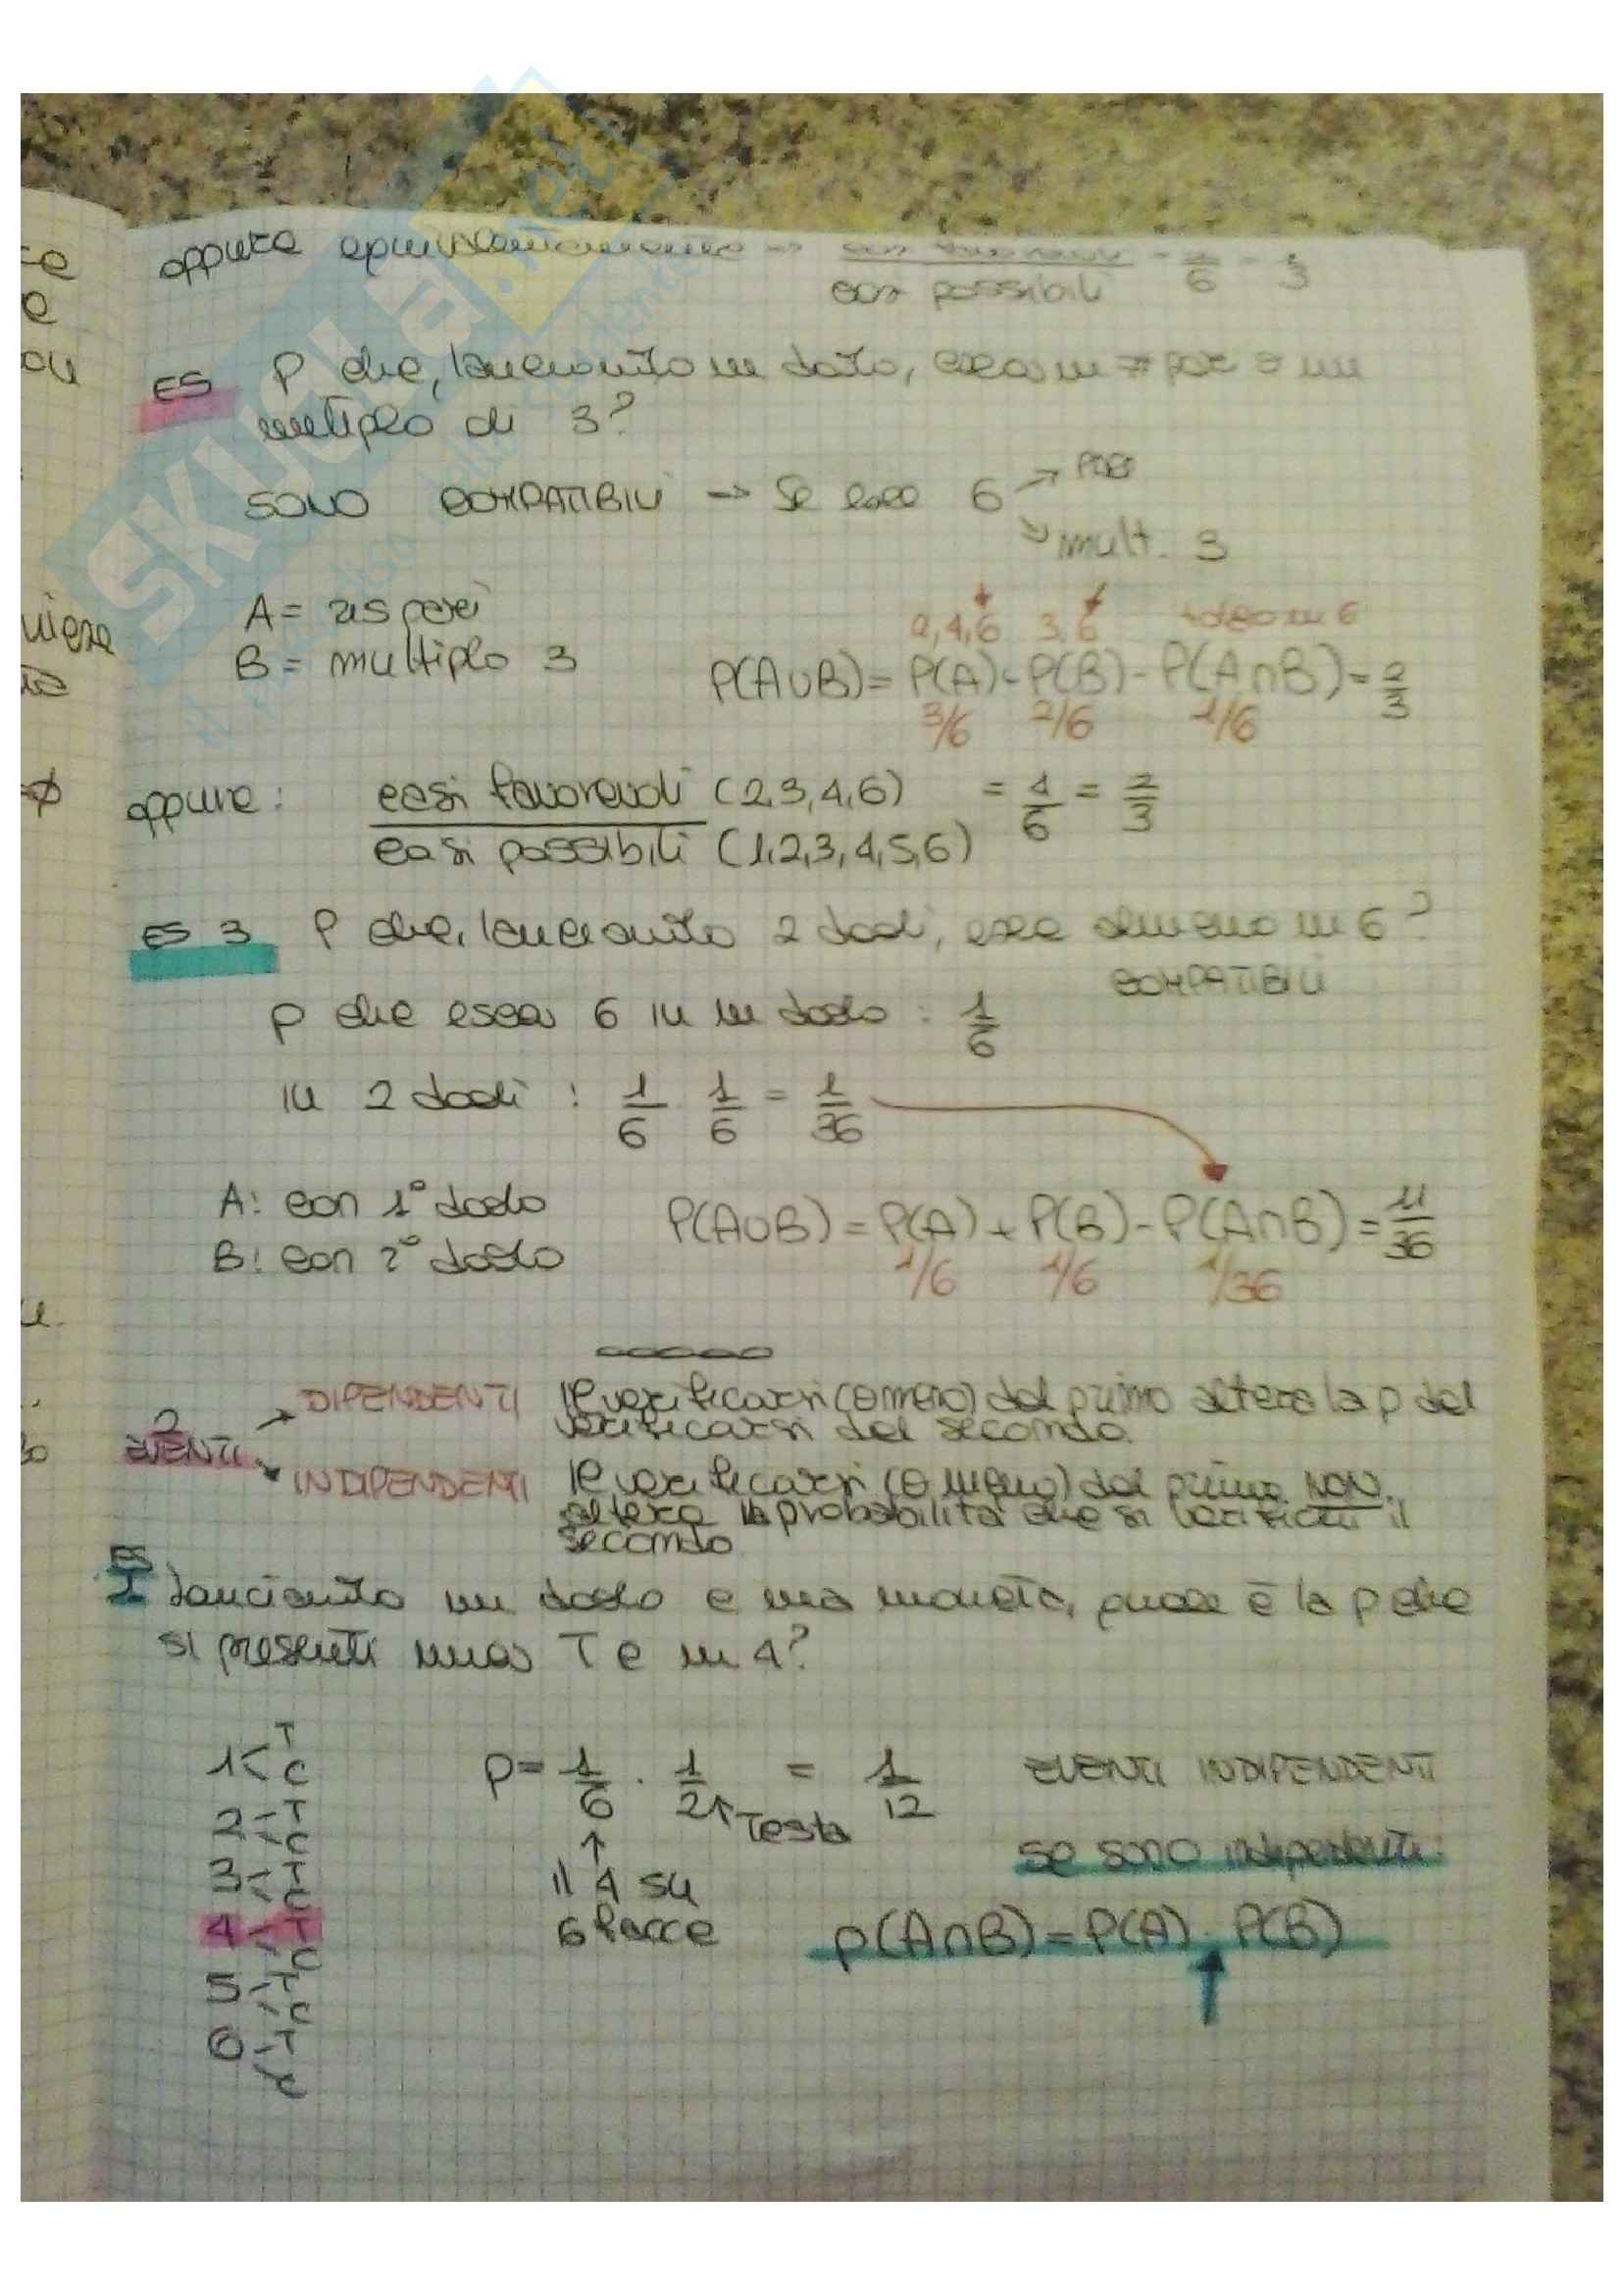 oppure
casi possibili 6 3
ES P che, lanciando un dado, esca un # pari o un
multiplo di 3?
SONO COMPATIBILI → se esce 6 → PARI
↘ mult. 3
A = pari
B = multiplo 3
2,4,6 3,6 6
P(A∪B) = P(A) + P(B) - P(A∩B) = 2/3
3/6 2/6 1/6
oppure: casi favorevoli (2,3,4,6) = 4/6 = 2/3
casi possibili (1,2,3,4,5,6)
ES 3 P che, lanciando 2 dadi, esca almeno un 6?
COMPATIBILI
p che esca 6 in un dado : 1/6
in 2 dadi : 1/6 1/6 = 1/36
A: con 1° dado
B: con 2° dado
P(A∪B) = P(A) + P(B) - P(A∩B) = 11/36
1/6 1/6 1/36
2 EVENTI
→ DIPENDENTI il verificarsi (o meno) del primo altera la p del
verificarsi del secondo.
↘ INDIPENDENTI il verificarsi (o meno) del primo NON
altera la probabilità che si verifichi il
secondo
ES 1 lanciando un dado e una moneta, qual è la p che
si presenti una T e un 4?
1 < T C
2 < T C
3 < T C
4 < T C
5 < T C
6 < T C
p = 1/6 · 1/2 = 1/12 EVENTI INDIPENDENTI
↑ Testa
↑ il 4 su
6 facce
se sono indipendenti:
p(A∩B) = P(A) · P(B)
SKUOLA.net